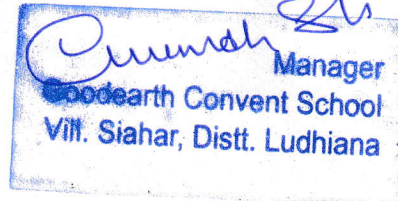 Manager
Goodearth Convent School
Vill. Siahar, Distt. Ludhiana